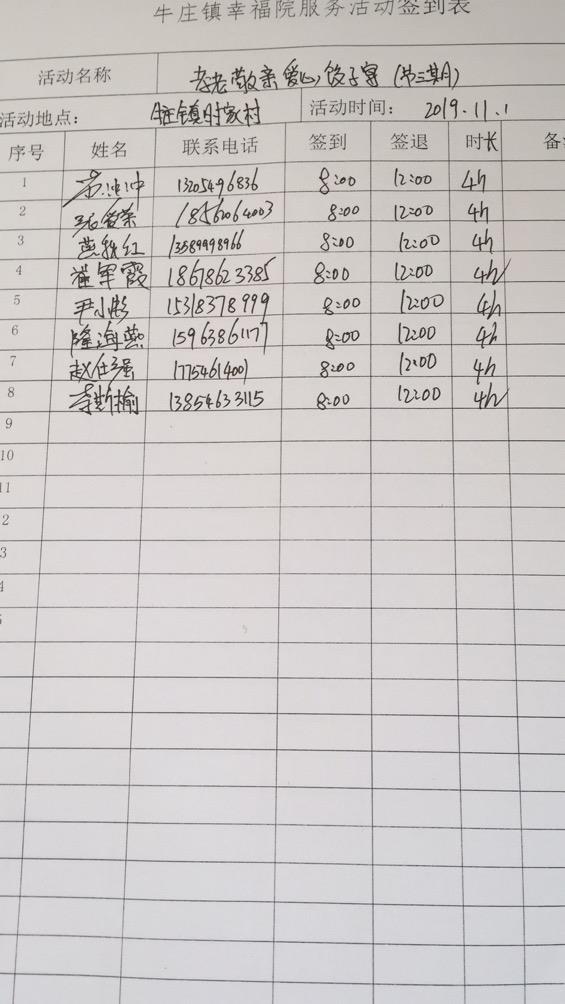 牛庄镇幸福院服务活动签到表
活动名称 孝老敬亲 爱心饺子宴 (第三期)
活动地点: 牛庄镇时家村 活动时间: 2019.11.1
序号 姓名 联系电话 签到 签退 时长 备
1 冲冲 13205496836 8:00 12:00 4h
2 爱荣 18562064003 8:00 12:00 4h
3 燕红 13589998966 8:00 12:00 4h
4 崔军霞 18678623385 8:00 12:00 4h
5 尹小彤 15318378999 8:00 12:00 4h
6 隆海燕 15963861177 8:00 12:00 4h
7 赵仕强 17754614001 8:00 12:00 4h
8 李斯榆 13854633115 8:00 12:00 4h
9
10
11
2
3
4
5